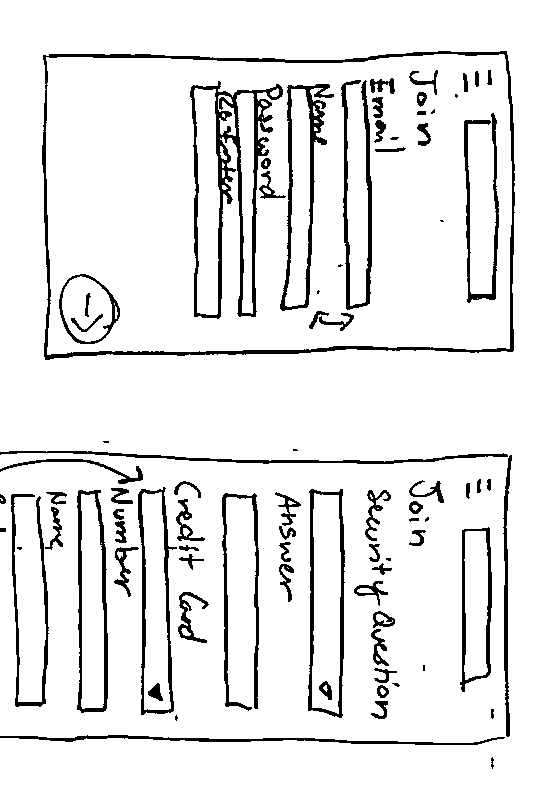 Join
Email
Name
Password
Join
Security Question
Answer
Credit Card
Number
Name